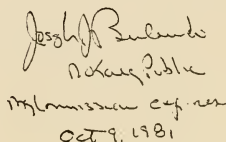 Joseph J
Notary Public
My Commission expires
Oct 9, 1981